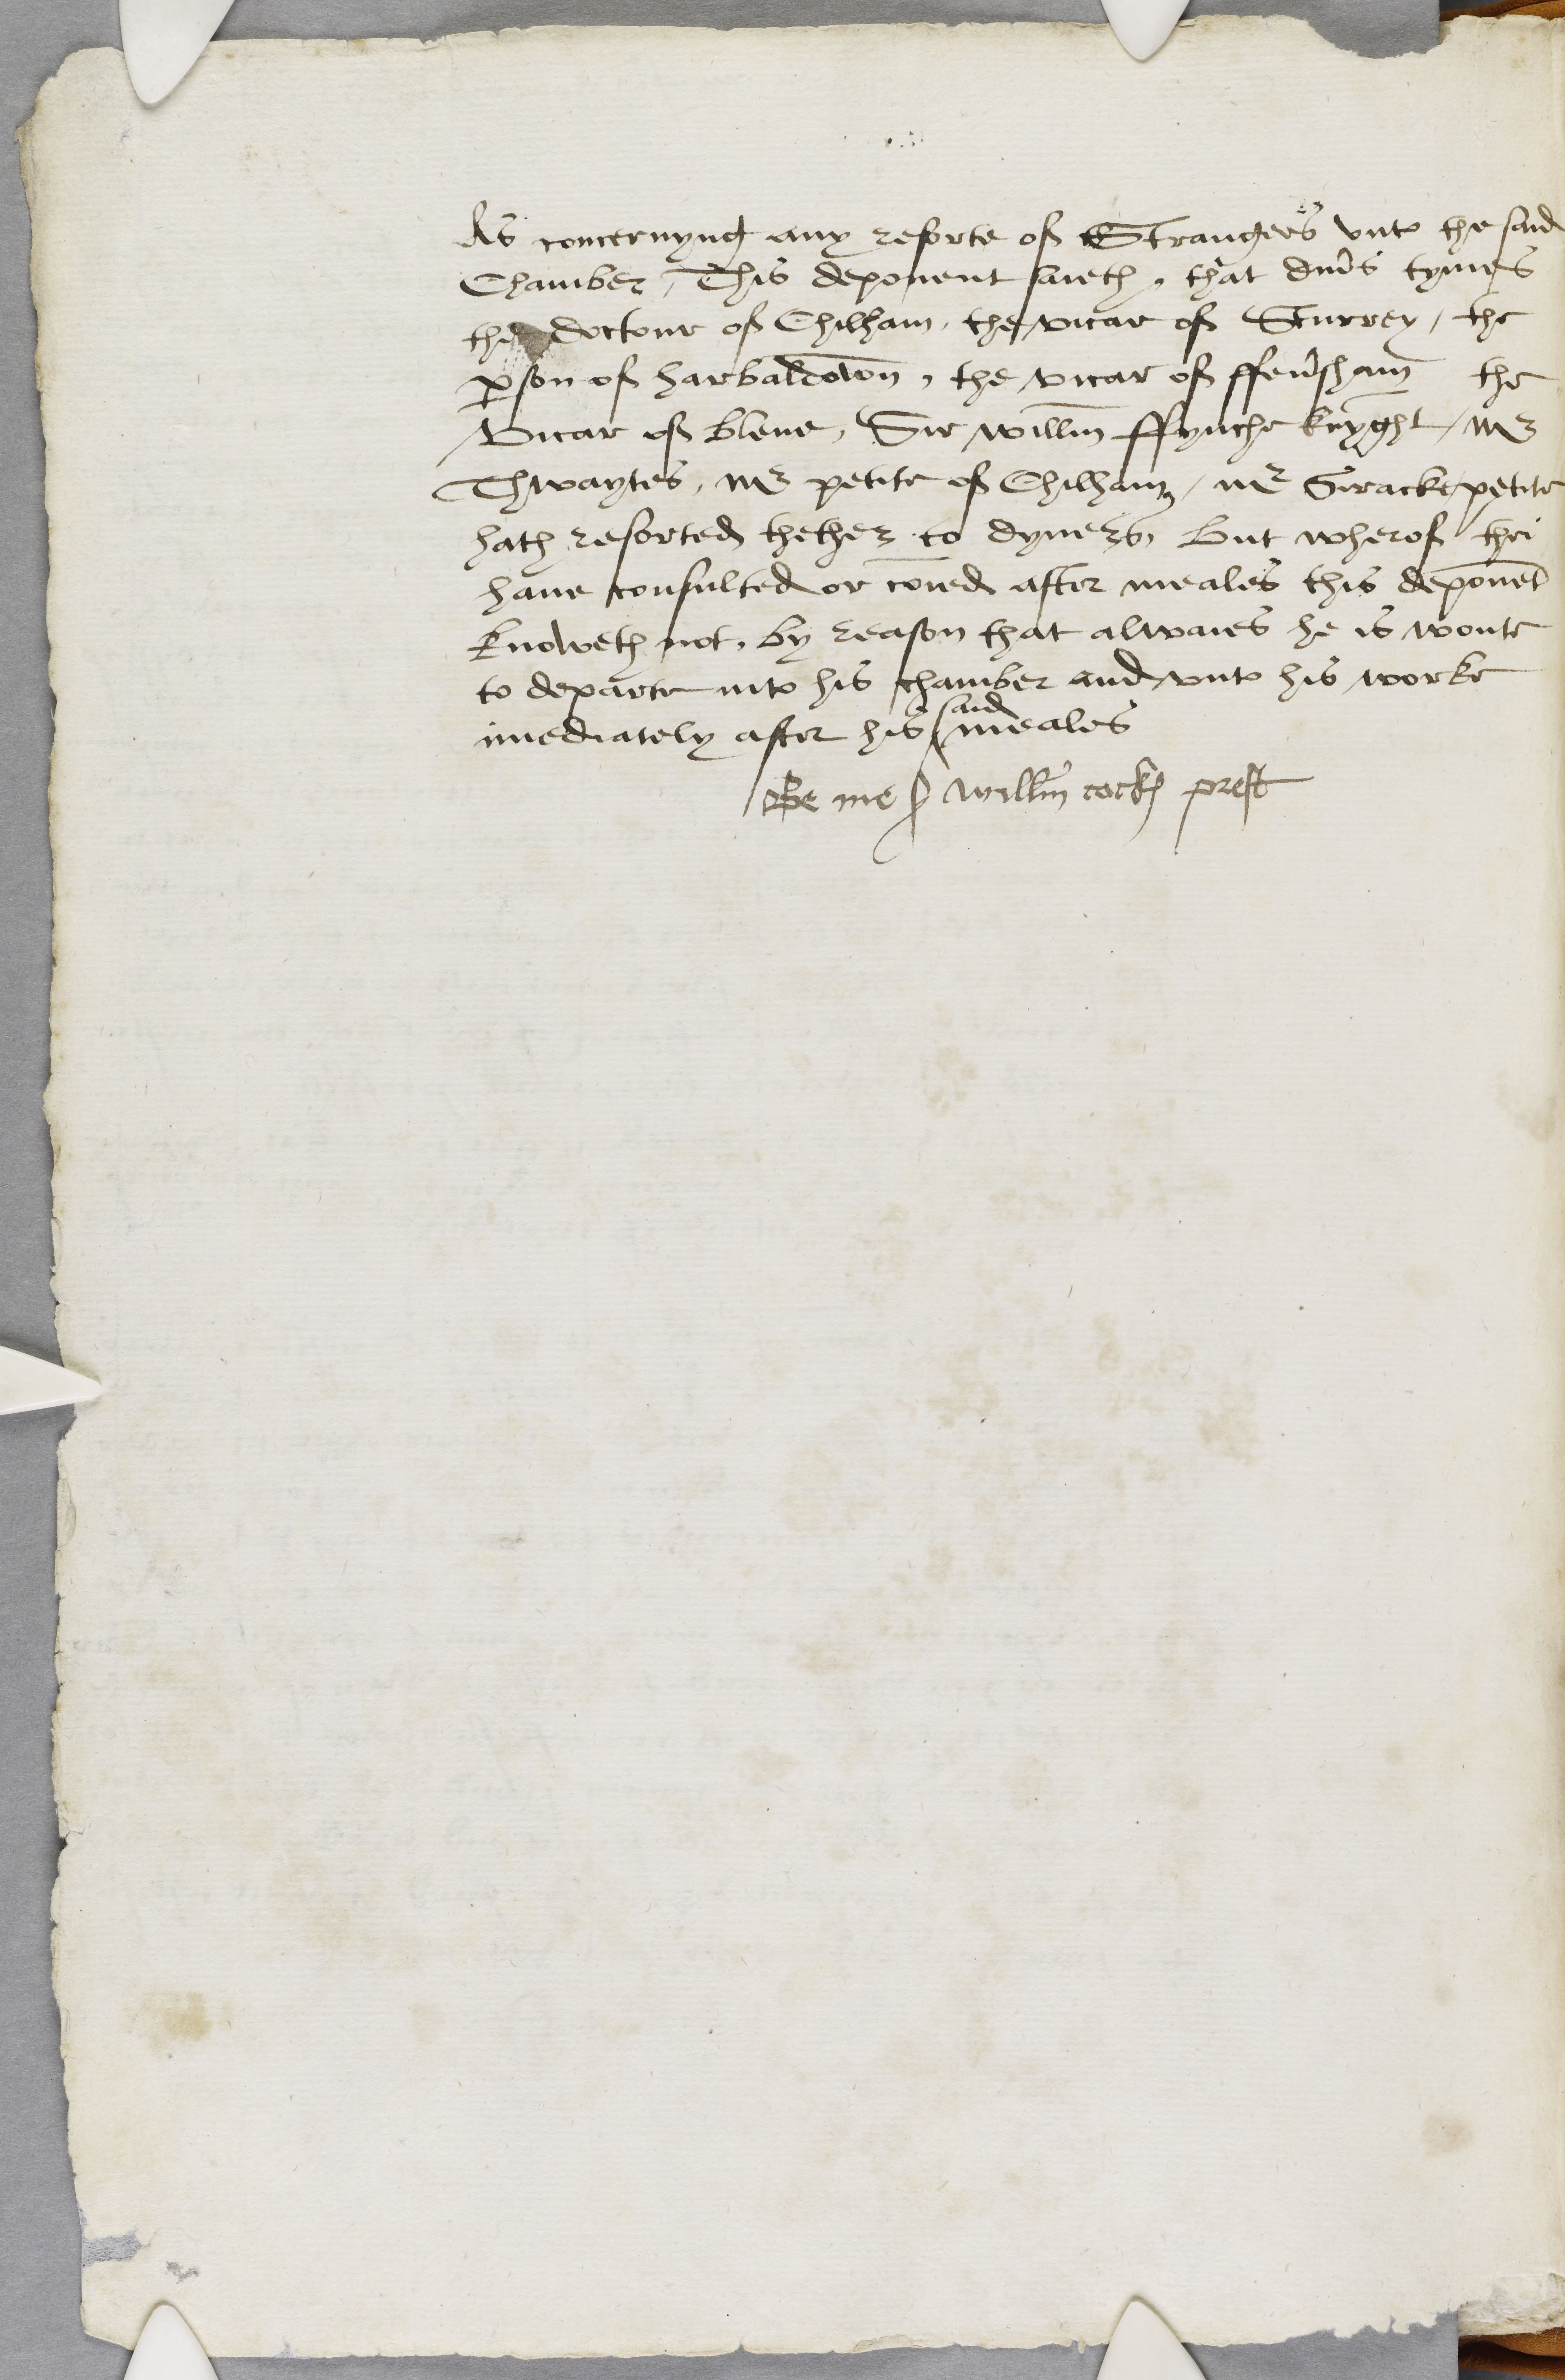 As concernyng any resorte of Strangers vnto the said
Chamber, This deponent saieth, that diu's tymes
the doctour of Chilham, the vicar of Sturrey, the
pson of harbaldown, the vicar of ffeu'sham the
Vicar of blene, Sir willm ffynche knyght, Mr
Thwaytes, Mr petite of Chilham, Mr petite
hath resorted thether to dyners, But wherof thei
haue consulted or coied after meales this deponet
knoweth not, by reason that alwaies he is wonte
to departe into his chamber and vnto his worke
imediately after his said meales
Be me willm cockꝭ prest